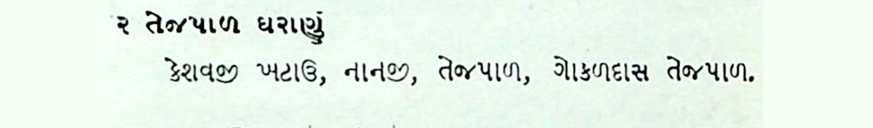 ૨ તેજપાળ ઘરાણું
કેશવજી ખટાઉ, નાનજી, તેજપાળ, ગોકળદાસ તેજપાળ.